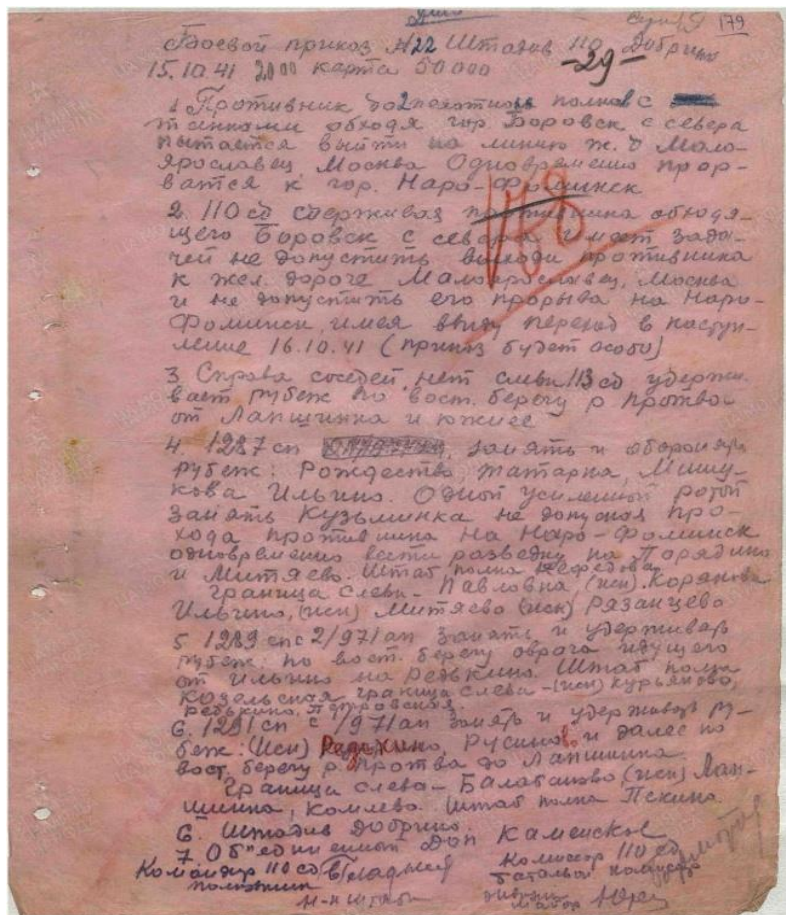 179
Боевой приказ №22 Штадив 110 Добрино
-29-
15.10.41 20 00 карта 50 000
1 Противник до 2 пехотных полков с
танками обходя гор. Боровск с севера
пытается выйти на линию ж. д Мало-
ярославец Москва Одновременно прор-
ваться к гор. Наро-Фоминск
178
2. 110 сд сдерживая противника обходя-
щего Боровск с севера имеет зада-
чей не допустить выхода противника
к жел. дороге Малоярославец, Москва
и не допустить его прорыва на Наро-
Фоминск, имея ввиду переход в наступ-
ление 16.10.41 (приказ будет особо)
3. Справа соседей нет слева 113 сд удержи-
вает рубеж по вост. берегу р Протва
от Лапшинка и южнее
4. 1287 сп занять и оборонять
рубеж: Рождество Татарка, Мишу-
кова Ильино. Одной усиленной ротой
занять Кузьминка не допуская про-
хода противника на Наро-Фоминск
одновременно вести разведку на
и Митяево. Штаб полка Нефедова
Граница слева - Павловка, (иск). Корякова
Ильино, (иск) Митяево (иск) Рязанцево
5 1289 сп с 2/971 ап занять и удерживать
рубеж: по вост. берегу оврага идущего
от Ильино на Редькино. Штаб полка
Козельская граница слева - (иск) Курьяново,
Редькино, Петровская.
6. 1291 сп с 1/971 ап занять и удерживать ру-
беж: (иск) Редькино, Русиново и далее по
вост. берегу р. Протва до Лапшинка.
Граница слева - Балабаново (иск) Лап-
шинка, Комлево. Штаб полка Пекино.
6. Штадив Добрино.
7. Об"единенный ДОП Каменское
Командир 110 сд Комиссар 110 сд
полковник батальон комиссар
Н-к штаба майор